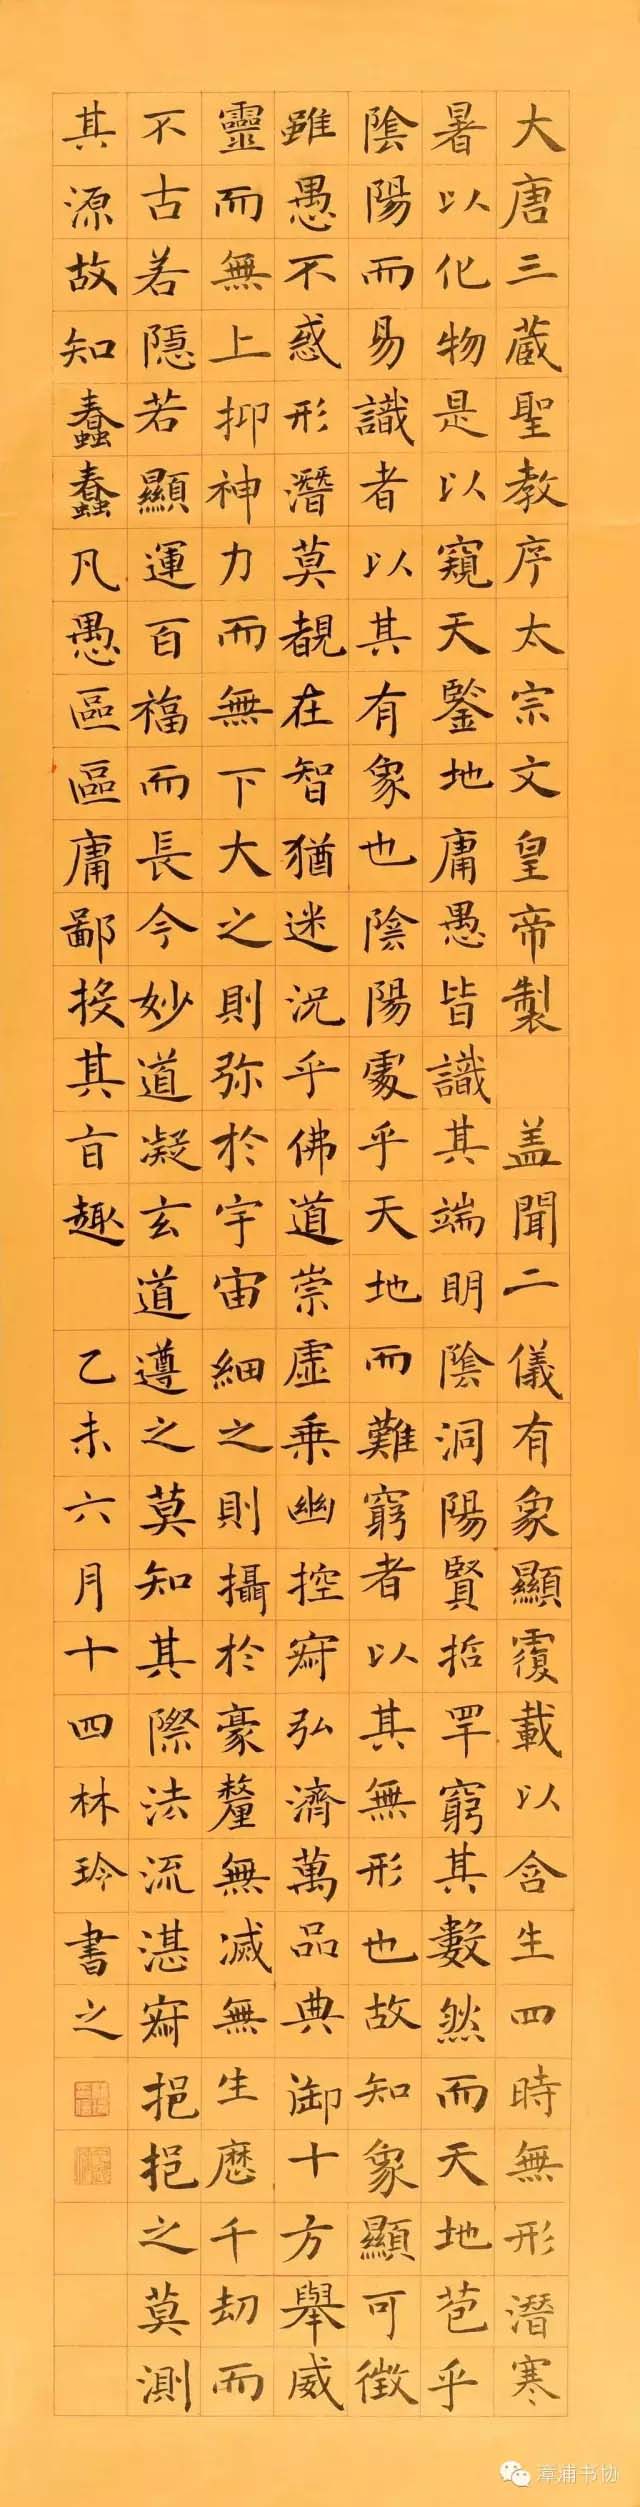 大唐三蔵聖教序太宗文皇帝製 盖聞二儀有象顯覆載以含生四時無形潛寒
暑以化物是以窺天鑒地庸愚皆識其端明陰洞陽賢哲罕窮其數然而天地苞乎
陰陽而易識者以其有象也陰陽處乎天地而難窮者以其無形也故知象顯可徵
雖愚不惑形潛莫覩在智猶迷況乎佛道崇虛乗幽控寂弘濟萬品典御十方舉威
靈而無上抑神力而無下大之則弥於宇宙細之則攝於豪釐無滅無生歷千劫而
不古若隱若顯運百福而長今妙道凝玄道遵之莫知其際法流湛寂挹挹之莫測
其源故知蠢蠢凡愚區區庸鄙投其旨趣 乙未六月十四林玲書之
漳浦书协